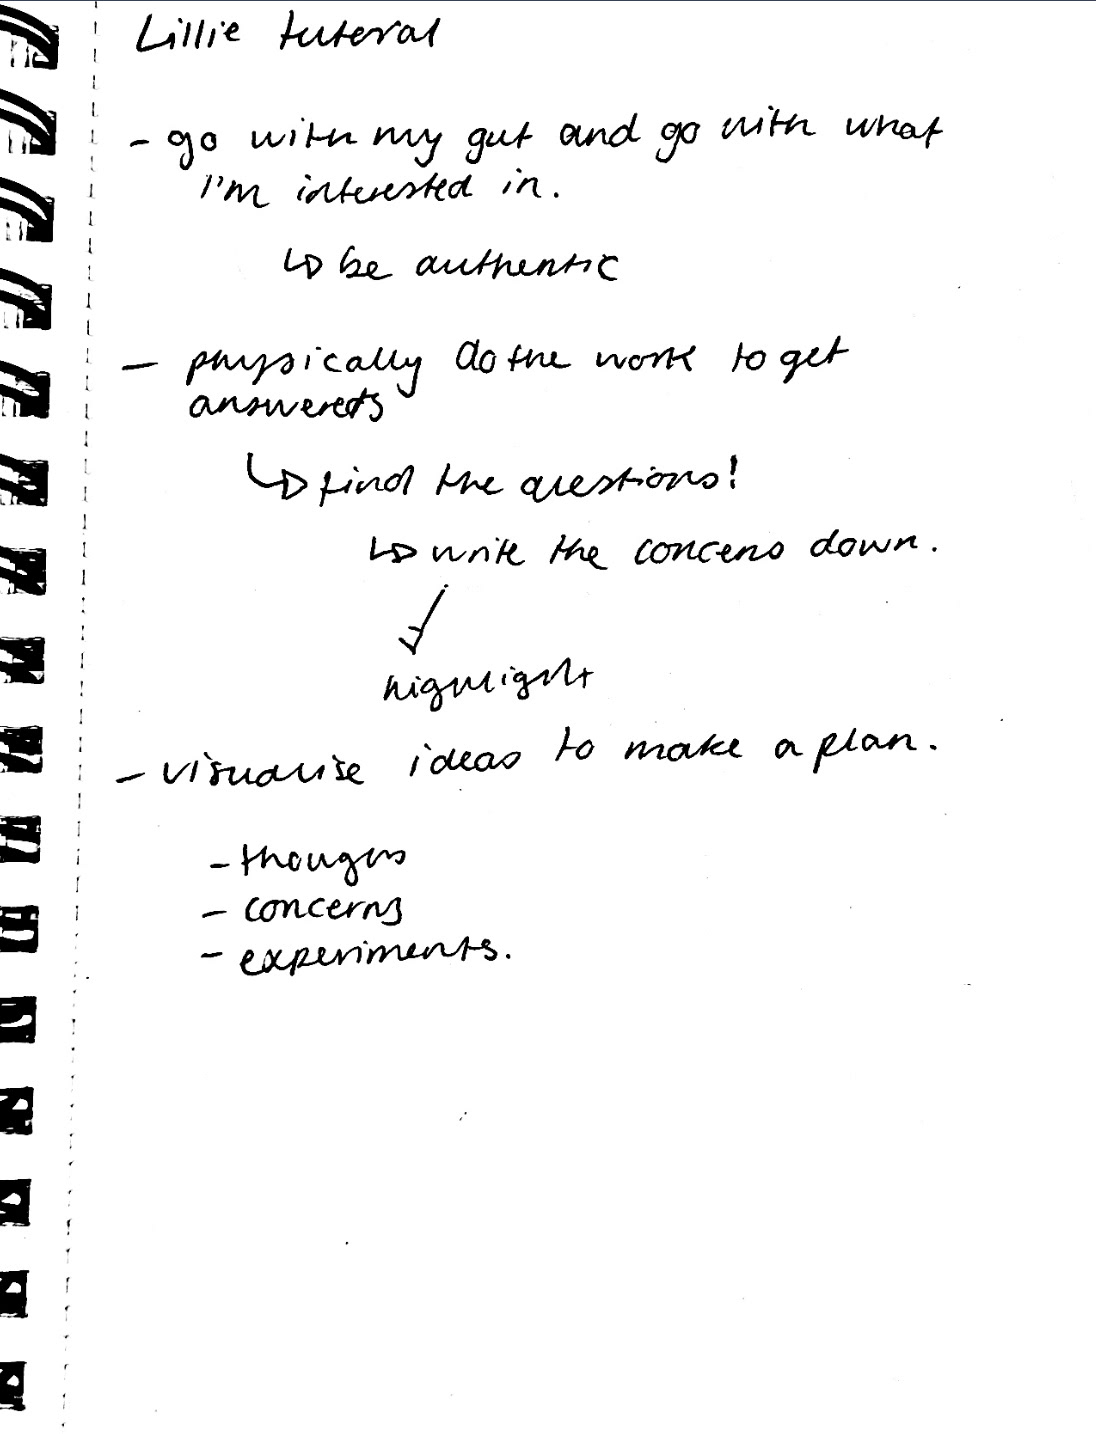 Lillie tuteral
- go with my gut and go with what
I'm interested in.
↳ be authentic
- physically do the work to get
answers
↳ find the questions!
↳ write the concens down.
highlight
- visualise ideas to make a plan.
- thoughs
- concerns
- experiments.